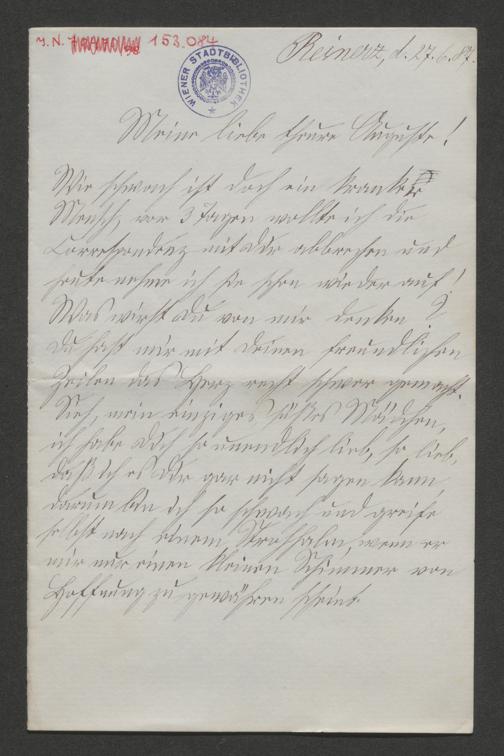 J. N. 153.084
WIENER STADTBIBLIOTHEK
Reinerz, d. 27.6.87.
Meine liebe theure Auguste!
Wie schwach ist doch ein kranker
Mensch, vor 3 Tagen wollte ich die
Correspondenz mit Dir abbrechen und
heute nehme ich sie schon wieder auf!
Was wirst Du von mir denken?
Du hast mir mit Deinen freundlichen
Zeilen das Herz recht schwer gemacht.
Sieh, mein einziges, süßes Mädchen,
ich habe Dich so unendlich lieb, so lieb,
daß ich es Dir gar nicht sagen kann
darum bin ich so schwach und greife
selbst nach einem Strohhalm, wenn er
mir nur einen kleinen Schimmer von
Hoffnung zu gewähren scheint